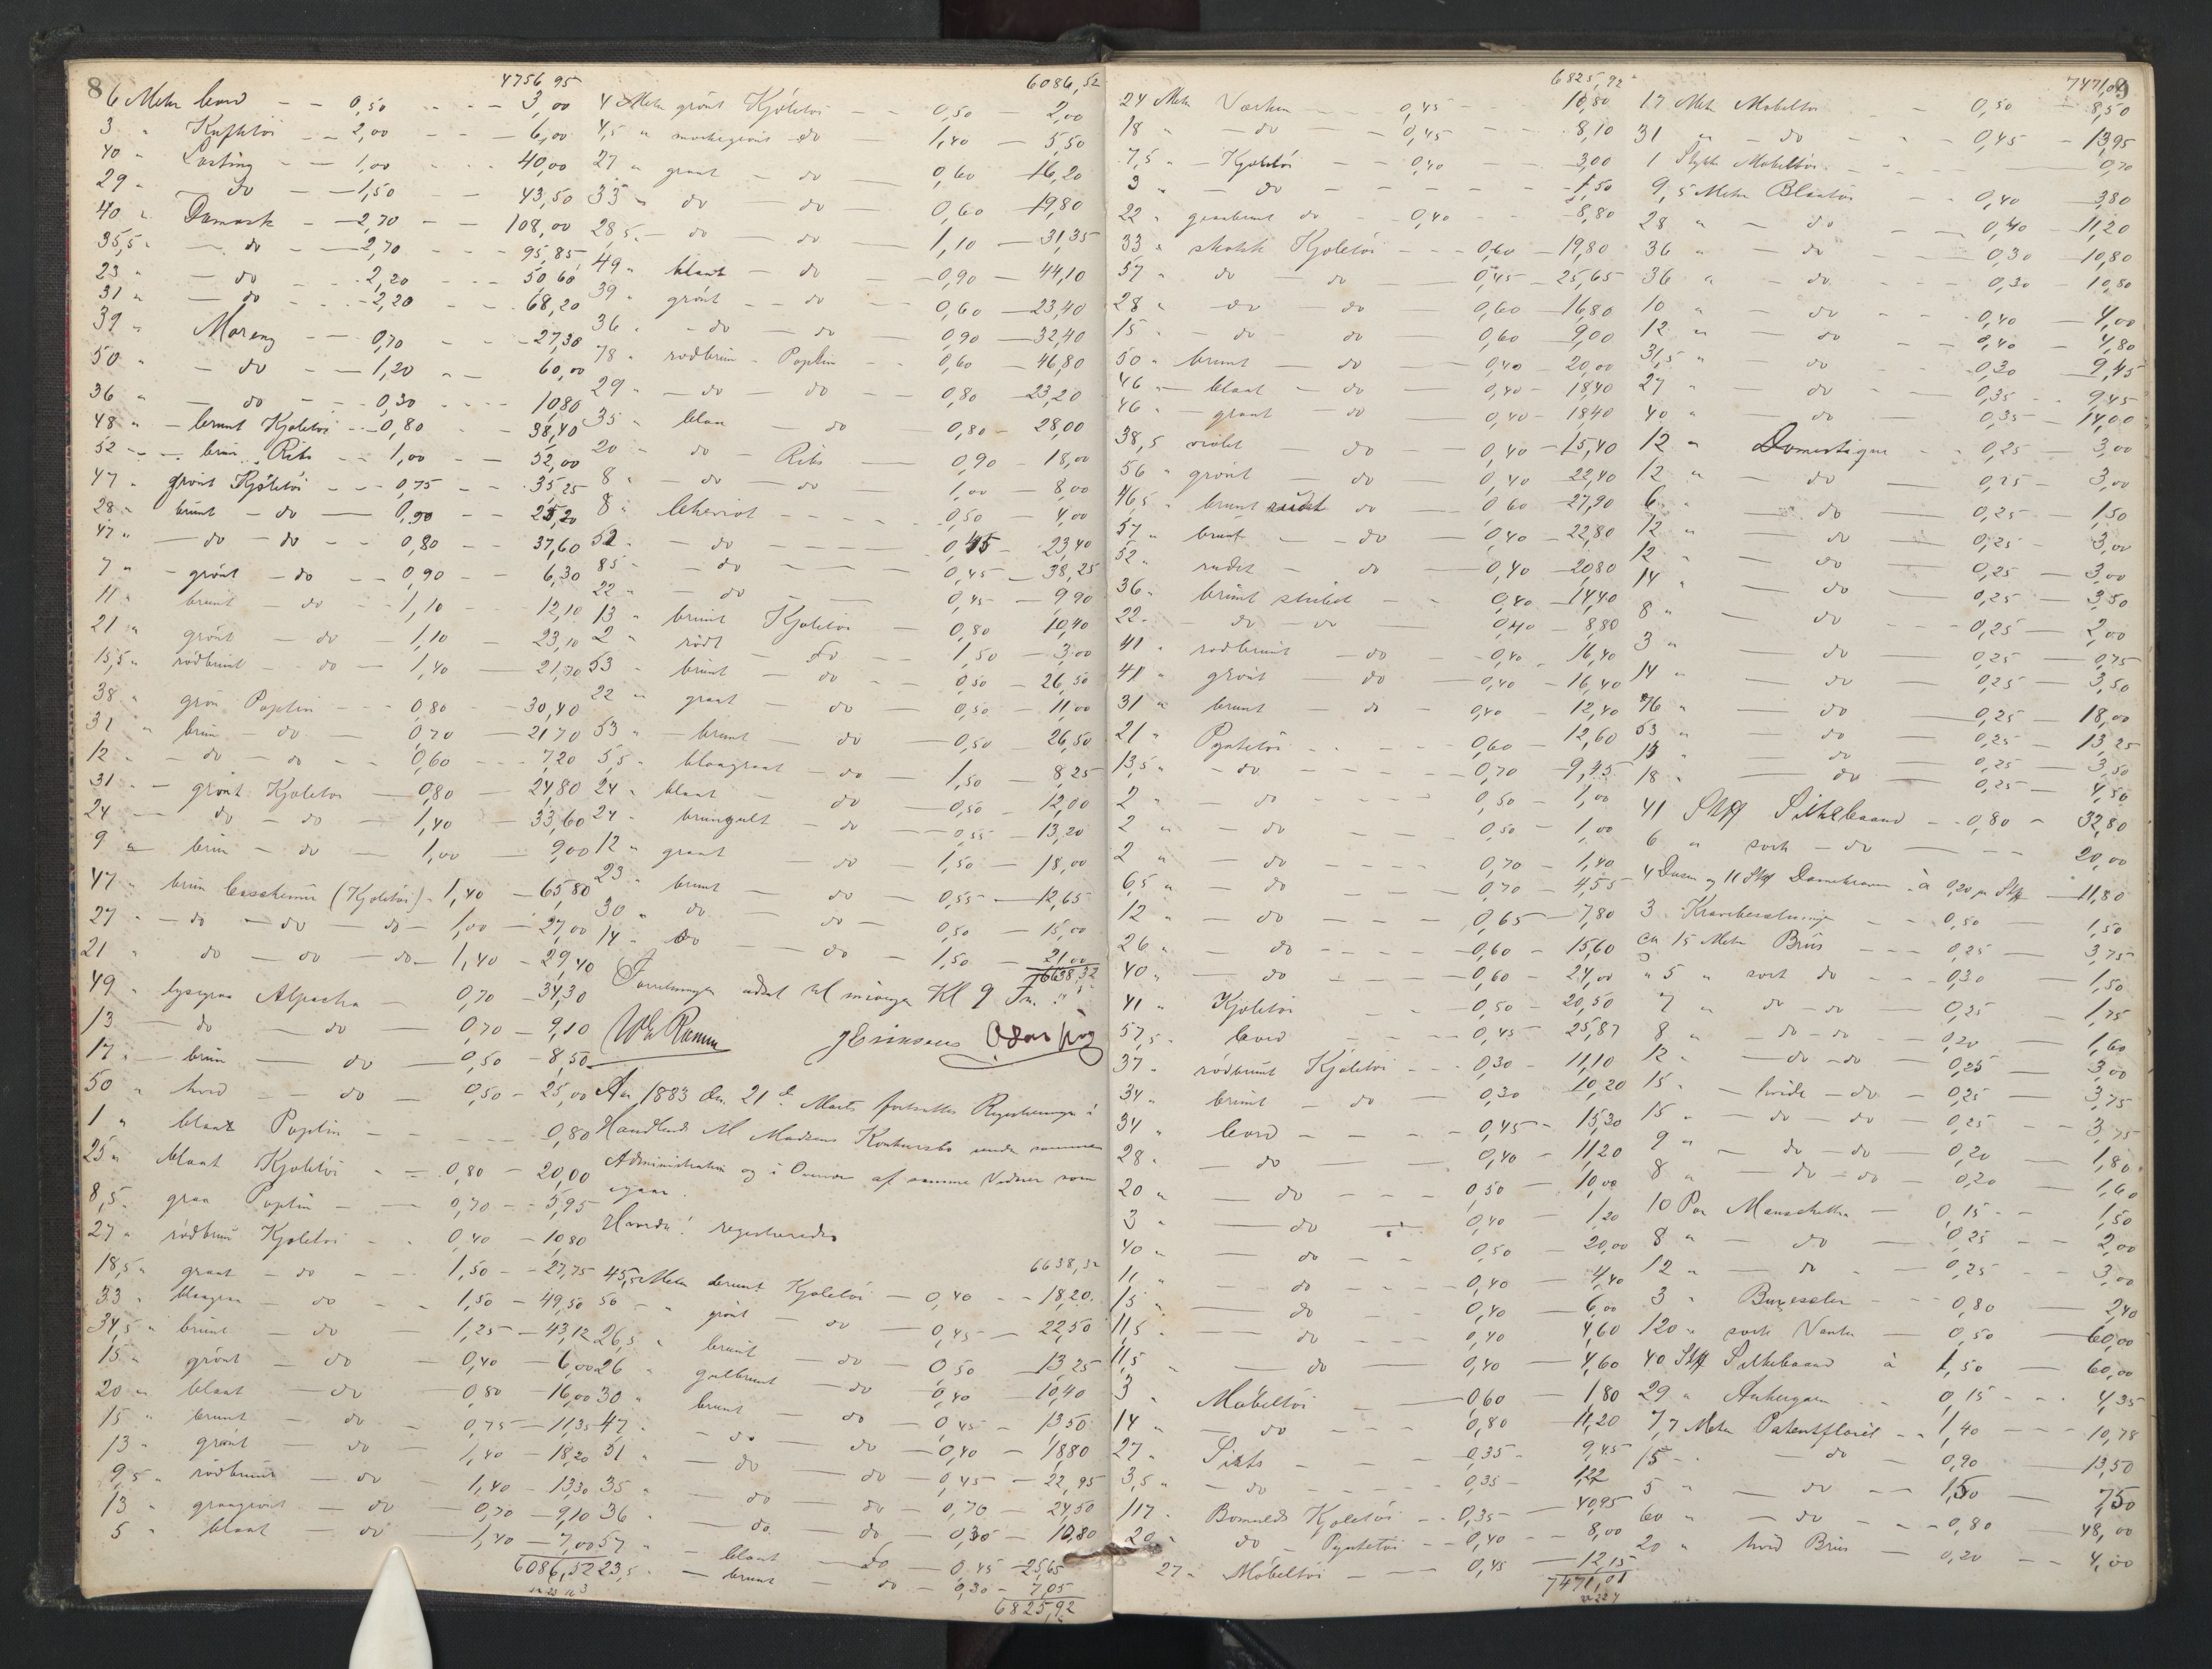 8
4756,95
6 Meter Cord - - 0,50 - - - 3,00
3 " Kufttöi - - 2,00 - - - 6,00
40 " Lasting - - 1,00 - - - 40,00
29 " do - - 1,50 - 43,50
40 " Damask - - 2,70 - - 108,00
35,5 " - do - - 2,70 - - - 95,85
23 " - do - - - 2,20 - - - 50,60
31 " - do - - - 2,20 - - 68,20
39 " Moreng - - 0,70 - - - 27,30
50 " - do - - 1,20 - - 60,00
36 " - do - - - 0,30 - - - 10,80
48 " - brunt Kjoletöi - - 0,80 - - 38,40
52 " - brun Ribs - - 1,00 - - 52,00
47 " grönt Kjöletöi - - 0,75 - - 35,25
28 " brunt - do - 0,90 - - 25,20
47 " - do - do - - 0,80 - - 37,60
7 " - grönt - do - - 0,90 - - 6,30
11 " brunt - do - - 1,10 - 12,10
21 " grönt - do - 1,10 - 23,10
15,5 " rödbrunt - do - 1,40 - 21,70
38 " grön Poplin - - - 0,80 - - 30,40
31 " brun - do - 0,70 - 21,70
12 " - do - do - - 0,60 - - - 7,20
31 " - grönt Kjoletöi - 0,80 - 24,80
24 " do - do - 1,40 - 33,60
9 " brun - do - 1,00 - 9,00
47 " brun Casschemir (Kjoletöi) - 1,40 - 65,80
27 " - do - do - do - 1,00 - 27,00
21 " do - do - do - 1,40 - 29,40
49 " lysegraa Alpacka - 0,70 - 34,30
13 - do - do - 0,70 - 9,10
17 " - brun - do - 0,50 - 8,50
50 " hvid - do - 0,50 - 25,00
1 " blaat Poplin - - - - - 0,80
25 " blaat Kjoletöi - - 0,80 - 20,00
8,5 " graa Poplin - - 0,70 - - 5,95
27 " rödbrun Kjoletöi - - 0,40 - 10,80
18,5 " graat - do - - - 1,50 - - 27,75
33 " blaagraa - do - - 1,50 - 49,50
34,5 " brunt - do - 1,25 - 43,12
15 " grönt - do - 0,40 - 6,00
20 " blaat - do - 0,80 - 16,00
15 " brunt - do - 0,75 - 11,35
13 " grönt - do - 1,40 - 18,20
9,5 " rödbrunt - do - 1,40 - 13,30
13 " graagrönt - do - 0,70 - 9,10
5 " blaat - do - 1,40 - 7,00
6086,52
6086,52
4 Meter grönt Kjöletöi - - 0,50 - 2,00
4,5 " mörkegrönt do - 1,40 - 5,50
27 " graat - do - 0,60 - 16,20
33 " do - do - 0,60 - 19,80
28,5 " - do - do - 1,10 - 31,35
49 " blaat - do - 0,90 - 44,10
39 " grönt - - do - 0,60 - 23,40
36 " - do - do - 0,90 - 32,40
78 " rödbrun - Poplin - 0,60 - 46,80
29 " - do - do - 0,80 - 23,20
35 " blaa - do - 0,80 - 28,00
20 " do - Ribs - 0,90 - 18,00
8 " - do - do - 1,00 - 8,00
8 " Scheviot - - - - 0,50 - 4,00
52 " - do - - - - 0,45 - 23,40
85 " - do - - - - 0,45 - 38,25
22 " - do - - - 0,45 - 9,90
13 " brunt Kjoletöi - 0,80 - 10,40
2 " rödt - do - - 1,50 - 3,00
53 " brunt - do - 0,50 - 26,50
22 " graat - do - 0,50 - 11,00
53 " - brunt - do - 0,50 - 26,50
5,5 " blaagraat - do - 1,50 - 8,25
24 " blaat - do - 0,50 - 12,00
24 " brungult - do - 0,55 - 13,20
12 " graat - do - 1,50 - 18,00
23 " brunt - do - 0,55 - 12,65
30 " do - do - 0,50 - 15,00
14 " do - do - 1,50 - 21,00
6638,32
Forretningen udsat til imorgen Kl 9 Fm.
Aar 1883 den 21de Marts fortsattes Registreringen i
Handlende M Madsens Konkursbo under samme
Administration og i Overvær af samme Vidner som
igaar.
Herefter registreredes
6638,32
45,5 Meter brunt Kjoletöi - 0,40 - - 18,20
50 - " grönt - do - 0,45 - 22,50
26,5 " brunt - do - 0,50 - 13,25
26 " gulbrunt - do - 0,40 - 10,40
30 " brunt - do - 0,45 - 13,50
47 " - do - do - 0,40 - 18,80
51 " - do - do - 0,45 - 22,95
35 " - do - do - 0,70 - 24,50
36 " - do - do - 0,30 - 10,80
57 " - blaat - do - 0,45 - 25,65
23,5 " - brunt - do - 0,30 - 7,05
6825,92
6825,92
24 Meter Værken - - 0,45 - - 10,80
18 " - do - - 0,45 - - - 8,10
7,5 " - Kjoletöi - - 0,40 - - - 3,00
3 " - do - - - - - - 1,50
22 " graabrunt do - 0,40 - - - 8,80
33 " skotsk Kjoletöi - - - 0,60 - 19,80
57 " do - do - 0,45 - 25,65
28 " - do do - 0,60 - 16,80
15 " - do - do - 0,60 - 9,00
50 " brunt - do - 0,40 - 20,00
46 " - blaat - do - 0,40 - 18,40
46 " - graat - do - 0,40 - 18,40
38,5 violet - do - 0,40 - 15,40
56 " grönt - do - 0,40 - 22,40
46,5 " brunt rudet do - 0,60 - 27,90
57 " brunt - - do - 0,40 - 22,80
52 " rudet - do - 0,40 - 20,80
36 " brunt stribet - - 0,40 - 14,40
22 " - do - do - 0,40 - 8,80
41 " rödbrunt - do - - 0,40 - 16,40
41 " grönt - do - 0,40 - 16,40
31 " brunt - do - 0,40 - 12,40
21 " Pyntetöi - - - - 0,60 - 12,60
13,5 " - do - - - - 0,70 - 9,45
2 " - do - - - - 0,50 - 1,00
2 " - do - - - - 0,50 - 1,00
2 " - do - - - - 0,70 - 1,40
6,5 " - do - - - - 0,70 - 4,55
12 " - do - - - - 0,65 - 7,80
26 " - do - - - - 0,60 - 15,60
40 " - do - - - - 0,60 - 24,00
41 " Kjoletöi - - - 0,50 - 20,50
57,5 " Cord - - - - 0,45 - 25,87
37 " rödbrunt Kjoletöi - - - 0,30 - 11,10
34 " brunt - do - 0,30 - 10,20
34 " Cord - - - - 0,45 - 15,30
28 " - do - - - 0,40 - 11,20
20 " - do - - - 0,50 - 10,00
3 " - do - 0,40 - 1,20
40 " - do - - 0,50 - 20,00
11 " - do - - - 0,40 - 4,40
15 " - do - - - 0,40 - 6,00
11,5 " - do - - - 0,40 - 4,60
11,5 " - do - 0,40 - 4,60
3 " Möbeltöi - 0,60 - 1,80
14 " - do - - - 0,80 - 11,20
27 " Sirts - - - 0,35 - 9,45
3,5 " - do - - - - 0,35 - 1,22
117 " Bomulds Kjoletöi - - 0,35 - 40,95
20 " do - Pyntetöi - - 0,40 - - 8,00
27 " Möbeltöi - - - 0,45 - 12,15
7471,01
9
7471,01
17 Meter Möbeltöi - 0,50 - 8,50
31 " - do - - - 0,45 - 13,95
1 Stykke Möbeltöi - - - 0,70
9,5 Meter Blaatöi - - 0,40 - 3,80
28 " - do - - 0,40 - 11,20
36 " - do - - 0,30 - 10,80
36 " - do - - - 0,30 - 10,80
10 " - do - - - 0,40 - 4,00
12 " - do - - 0,40 - 4,80
31,5 " do - 0,30 - 9,45
27 " - do - 0,35 - 9,45
40 " - do - 0,35 - 14,00
12 " Domestique - - 0,25 - 3,00
12 " - do - 0,25 - 3,00
6 " - do - 0,25 - 1,50
12 " - do - 0,25 - 3,00
12 " - do - 0,25 - 3,00
14 " do - 0,25 - 3,50
8 " - do - 0,25 - 2,00
3 " - do - 0,25 - 0,75
14 " - do - 0,25 - 3,50
76 " - do - 0,25 - 18,00
53 " - do - 0,25 - 13,25
14 " - do - 0,25 - 3,50
18 " - do - 0,25 - 4,50
41 Stkk Silkebaand - - 0,80 - 32,80
6 " sort - do - - - 20,00
4 Dusin og 11 Stkk Damekraver à 0,20 pr Stkk - 11,80
3 Kravebesætninger - - 0,50 - 1,50
ca 15 Meter Brüs - - - 0,25 - 3,75
" 5 " sort do - - 0,30 - 1,50
7 " do - do - 0,25 - 1,75
8 " - do - do - 0,20 - 1,60
12 " - do - do - 0,25 - 3,00
15 " - hvide - do - 0,25 - 3,75
15 " - do - do - 0,25 - - - 3,75
9 " - do - do - 0,20 - 1,80
8 " - do - do - 0,20 - 1,60
10 Par Manschetter - 0,15 - - 1,50
8 " - do - 0,25 - - 2,00
12 " - do - 0,25 - 3,00
3 " - - 0,80 - 2,40
120 " sort Vanter - 0,50 - 60,00
40 Stkk Silkebaand à 1,50 - 60,00
29 " Ankergarn - - 0,15 - - - 4,35
7,7 Meter Patentflöiel - - 1,40 - - - 10,78
15 - - do - 0,90 - 13,50
5 " - do - - 1,50 - 7,50
60 " - do - - - 0,80 - 48,00
20 " hvid Brüs - 0,20 - - 4,00